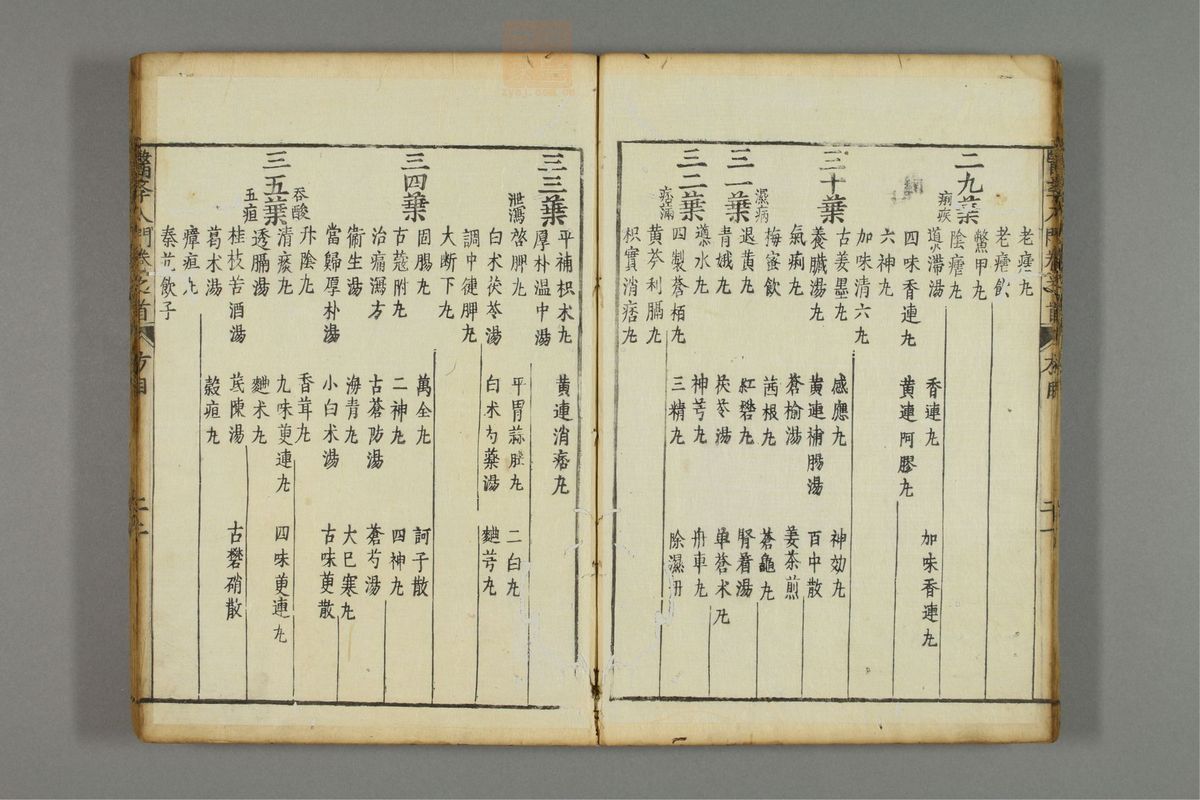 醫學入門卷之首 方目
老瘧丸
老瘧飲
鱉甲丸
陰瘧丸
二九葉
痢疾
導滯湯 香連丸 加味香連丸
四味香連丸 黄連阿膠丸
六神丸
加味清六丸
古姜墨丸 感應丸 神効丸
三十葉
養臟湯丸 黄連補腸湯 百中散
氣痢丸 蒼榆湯 姜茶煎
梅蜜飲 茜根丸 蒼龜丸
濕病
退黄丸 紅礬丸 腎着湯
三一葉
青娥丸 茯苓湯 單蒼术丸
遶水丸 神芎丸 舟車丸
三二葉
四製蒼栢丸 三精丸 除濕丹
痞滿
黄芩利膈丸
枳實消痞丸
平補枳术丸 黄連消痞丸
三三葉
厚朴温中湯
泄瀉
啓脾丸 平胃蒜肚丸 二白丸
白术茯苓湯 白术芍藥湯 麯芎丸
調中健脾丸
大断下丸
固腸丸 萬全丸 訶子散
三四葉
古蔻附丸 二神丸 四神丸
治痛瀉方 古蒼防湯 蒼芍湯
衛生湯 海青丸 大巳寒丸
當歸厚朴湯 小白术湯 古味萸散
吞酸
升陰丸 香茸丸
清痰丸 九味萸連丸 四味萸連丸
三五葉
透膈湯 麯术丸
五疸
桂枝苦酒湯 茋陳湯 古礬硝散
葛术湯 穀疸丸
瘴疸丸
秦艽飲子
醫學入門卷之首 方目